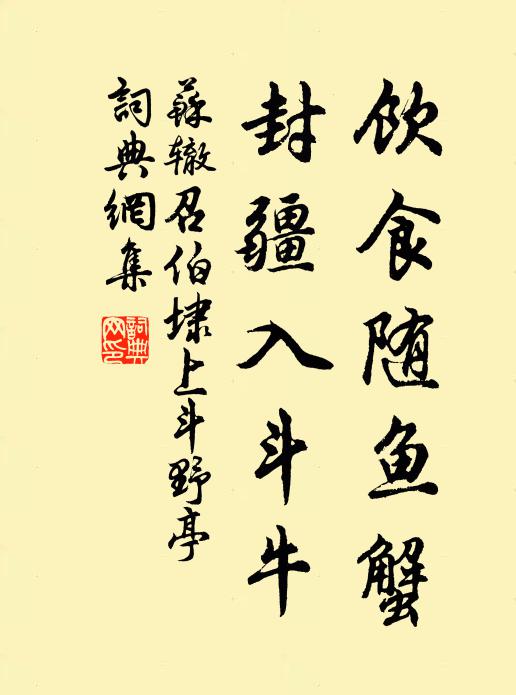 饮食随鱼蟹
封疆入斗牛
蘇辙召伯埭上斗野亭
詞典網集
詞典网印